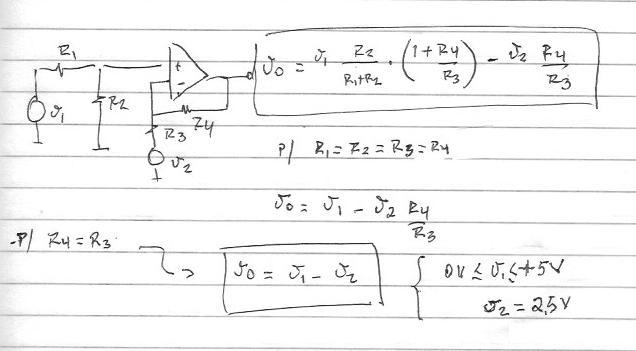 R1
R2
v1
+
-
R3
R4
v2
vo = v1 R2/(R1+R2) · (1 + R4/R3) - v2 R4/R3
P/ R1 = R2 = R3 = R4
vo = v1 - v2 R4/R3
-P/ R4 = R3
vo = v1 - v2
0V ≤ v1 ≤ +5V
v2 = 2,5V